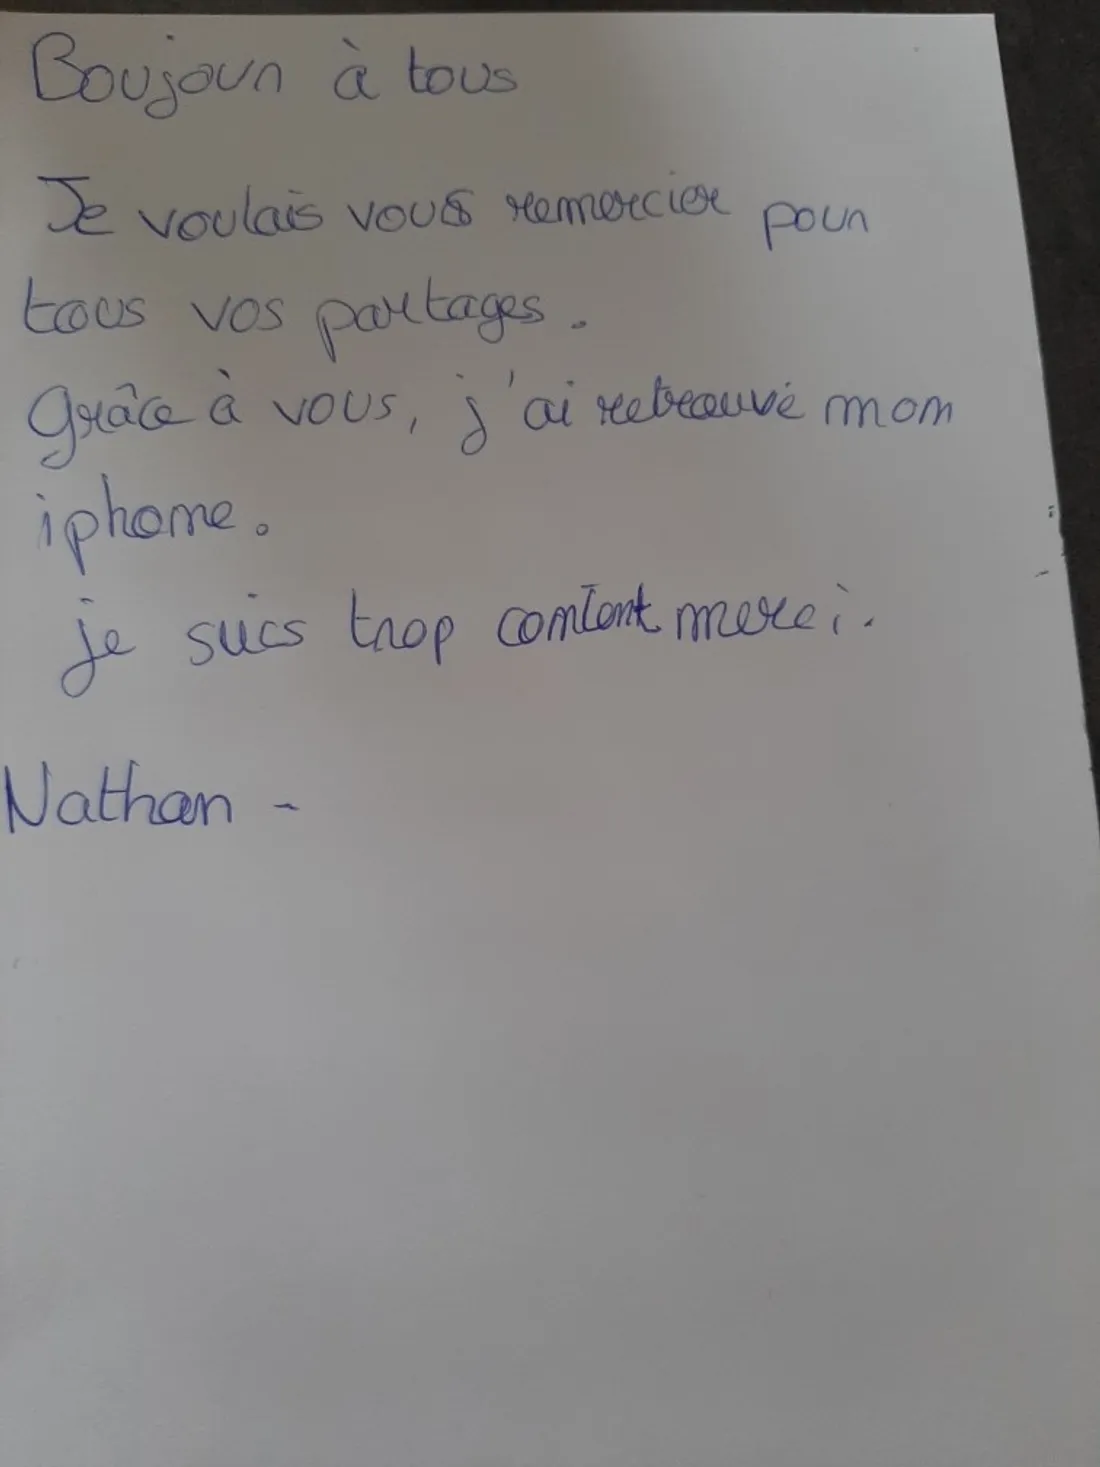 Boujoun à tous
Je voulais vous remercier pour
tous vos partages.
Grâce à vous, j'ai retrouvé mom
iphome.
je suis trop comtent merci.
Nathan -